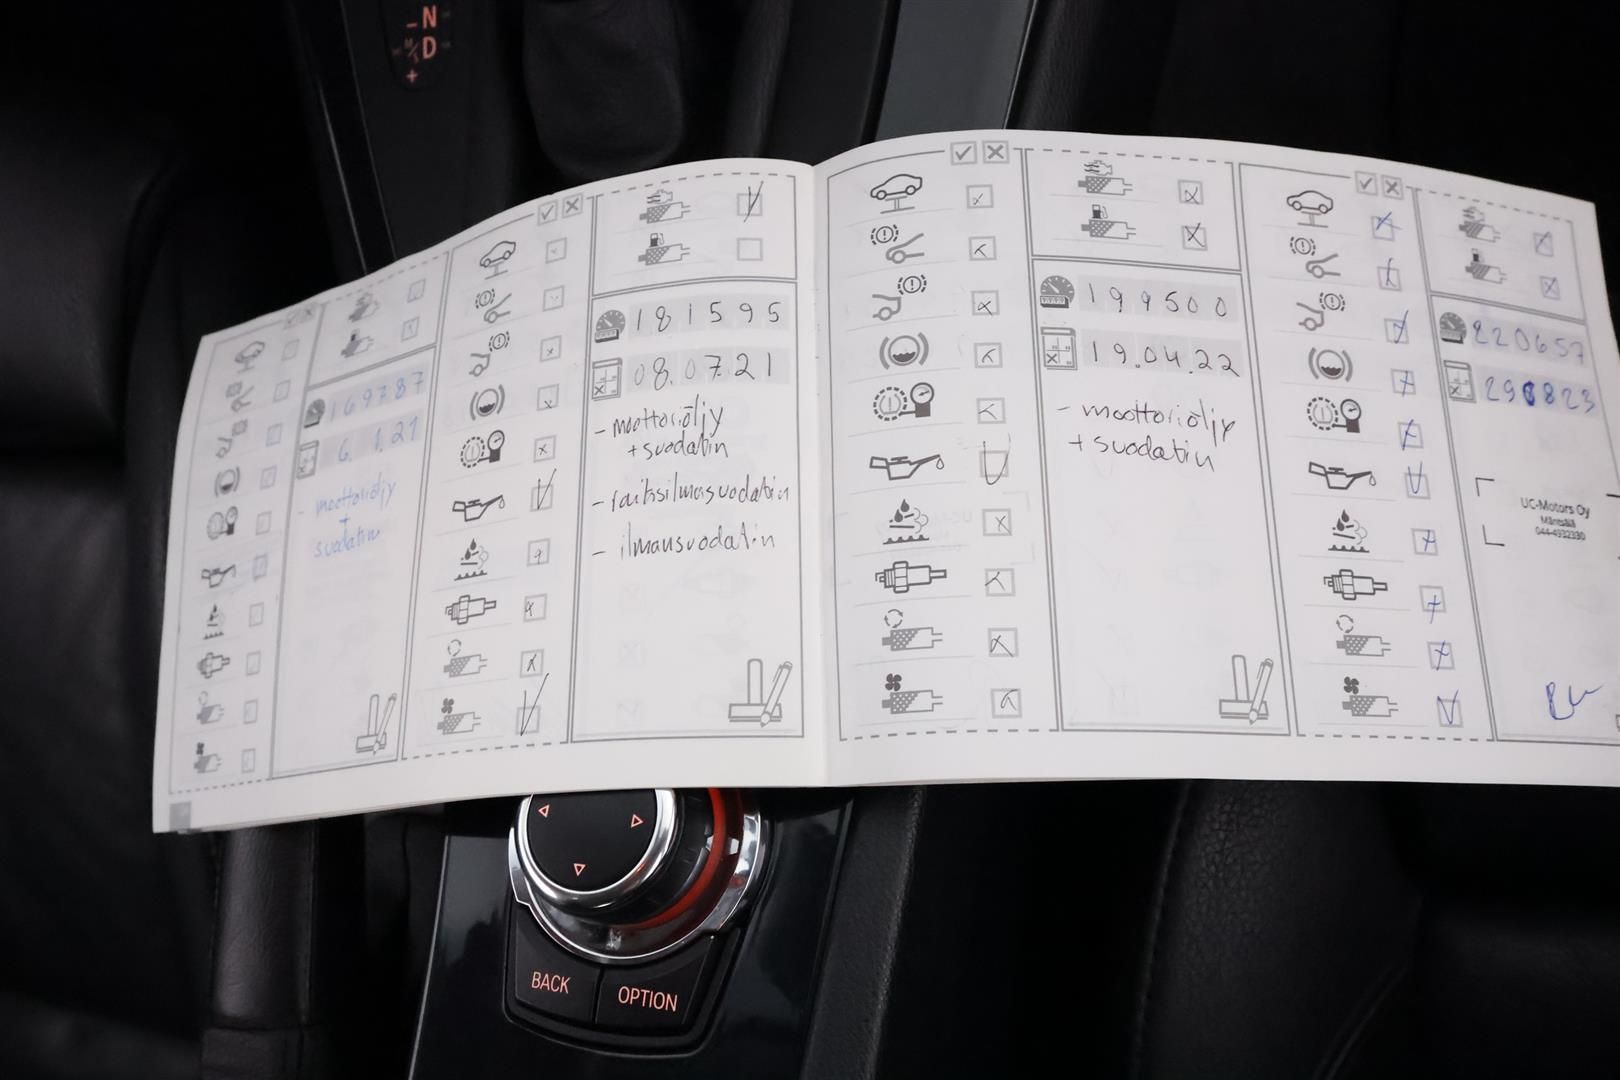 - N
M/S D
+
169787
6.1.21
- moottoriöljy
+
suodatin
181595
08.07.21
- moottoriöljy
+ suodatin
- raitisilmasuodatin
- ilmansuodatin
199500
19.04.22
- moottoriöljy
+ suodatin
220657
290823
UC-Motors Oy
Mäntsälä
044-4932330
BACK
OPTION